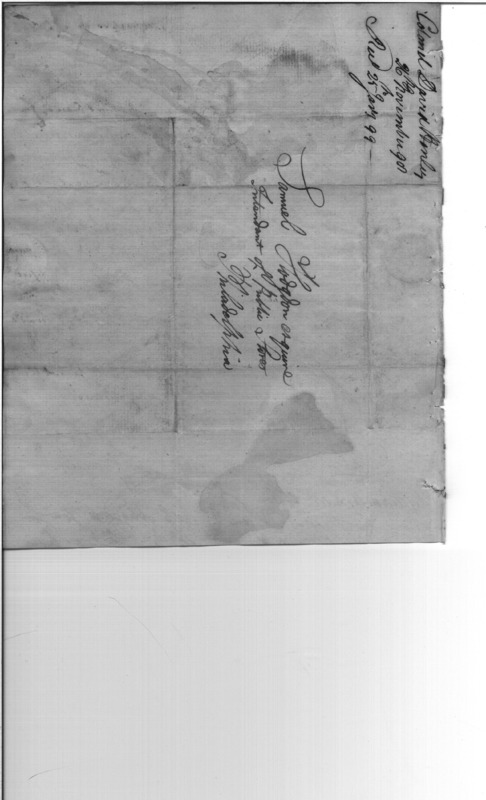 Colonel David Henley
26 November 98
Recd 25th Jany 99
Samuel Hodgdon esquire
Intendant of Public Stores
Philadelphia